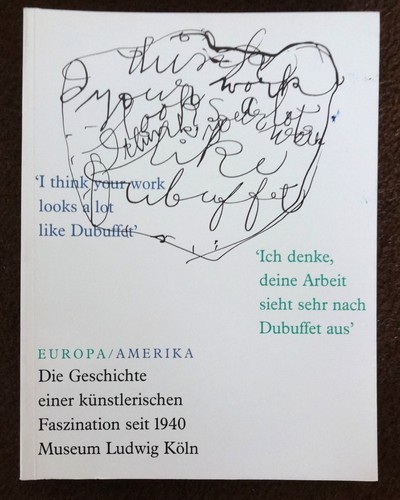 think
your work
looks a lot
like
Dubuffet
'I think your work
looks a lot
like Dubuffet'
'Ich denke,
deine Arbeit
sieht sehr nach
Dubuffet aus'
EUROPA/AMERIKA
Die Geschichte
einer künstlerischen
Faszination seit 1940
Museum Ludwig Köln